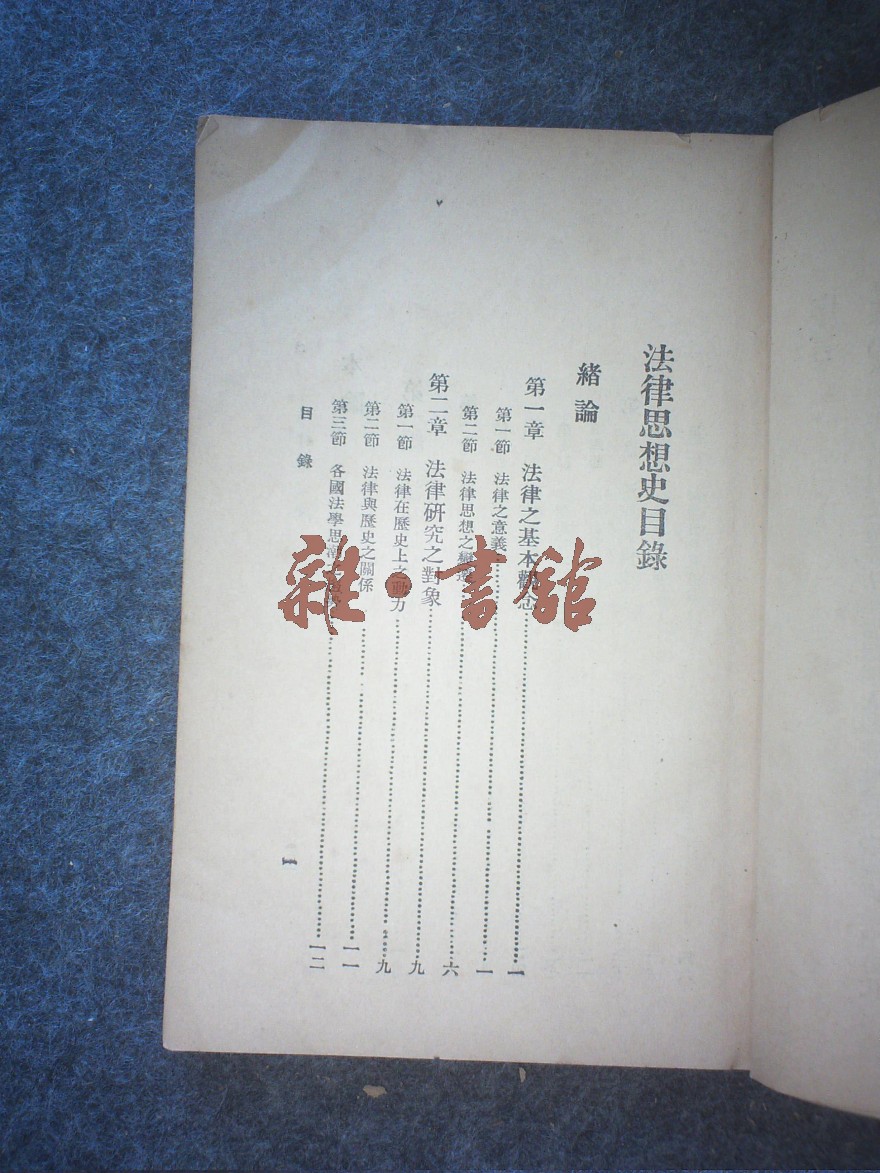 法律思想史目錄
緒論
第一章 法律之基本觀念……一
第一節 法律之意義……一
第二節 法律思想之變遷……六
第二章 法律研究之對象……九
第一節 法律在歷史上之動力……九
第二節 法律與歷史之關係……一一
第三節 各國法學思……一二
目錄
一
雜·書館